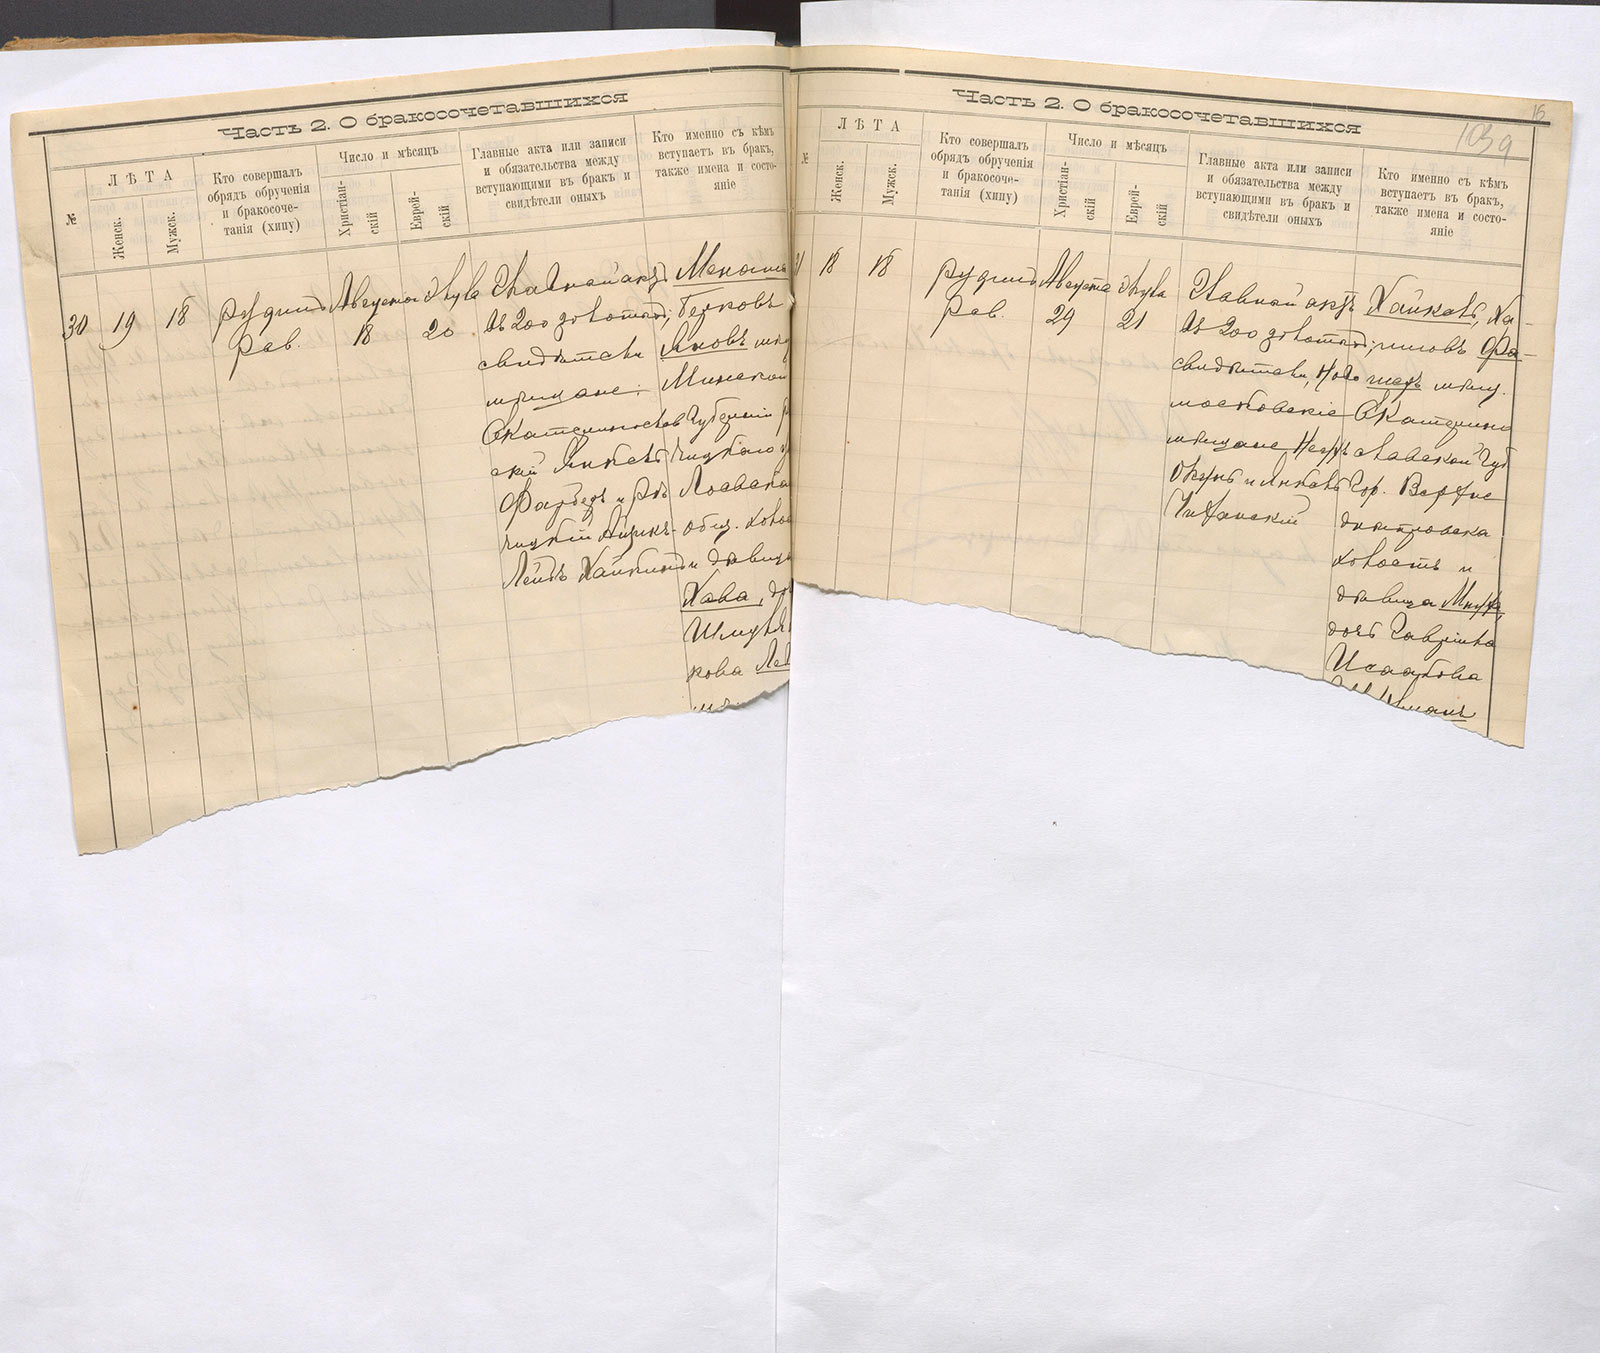 Часть 2. О бракосочетавшихся
№
ЛѢТА
Женск.
Мужск.
Кто совершалъ
обрядъ обрученія
и бракосоче-
танія (хипу)
Число и мѣсяцъ
Христіан-
скій
Еврей-
скій
Главные акта или записи
и обязательства между
вступающими въ бракъ и
свидѣтели оныхъ
Кто именно съ кѣмъ
вступаетъ въ бракъ,
также имена и состо-
яніе
30
19
18
Рудинъ
Рав.
Августа
18
20
Главной актъ
въ 200 золотыхъ;
свидѣтели
мѣщане:
Екатеринослав
скій Янкель
Фарберъ и Рѣ
чицкій Айзикъ-
Лейбъ Хайкинъ
Берковъ
Яновъ
Минской
Губерніи
чицкаго
Лоевска
общ. холос
и дѣвица
Хава,
кова
Часть 2. О бракосочетавшихся
15
1039
№
ЛѢТА
Женск.
Мужск.
Кто совершалъ
обрядъ обрученія
и бракосоче-
танія (хипу)
Число и мѣсяцъ
Христіан-
скій
Еврей-
скій
Главные акта или записи
и обязательства между
вступающими въ бракъ и
свидѣтели оныхъ
Кто именно съ кѣмъ
вступаетъ въ бракъ,
также имена и состо-
яніе
18
18
Рудинъ
Рав.
Августа
29
21
Главной актъ
въ 200 золотыхъ;
свидѣтели, Ново
московскіе
мѣщане
Окунь и Янкель
Хацкель, Ха-
имовъ
мѣщ.
Екатерино
славской Губ
Гор. Верхне
днѣпровска
холостъ и
дѣвица
дочь Гавріила
Исаакова